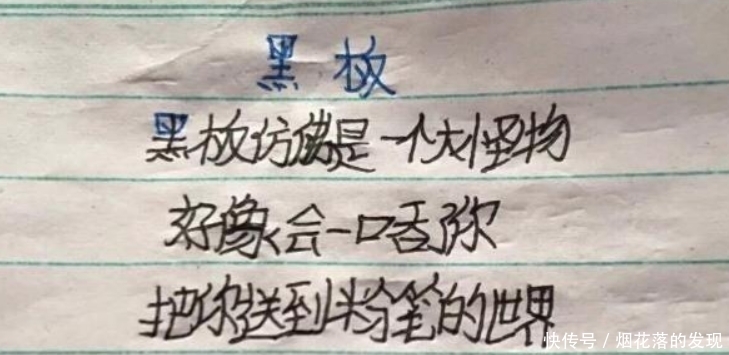 黑板
黑板仿佛是一个大怪物
好像会一口吞你
把你送到粉笔的世界
快传号/烟花落的发现